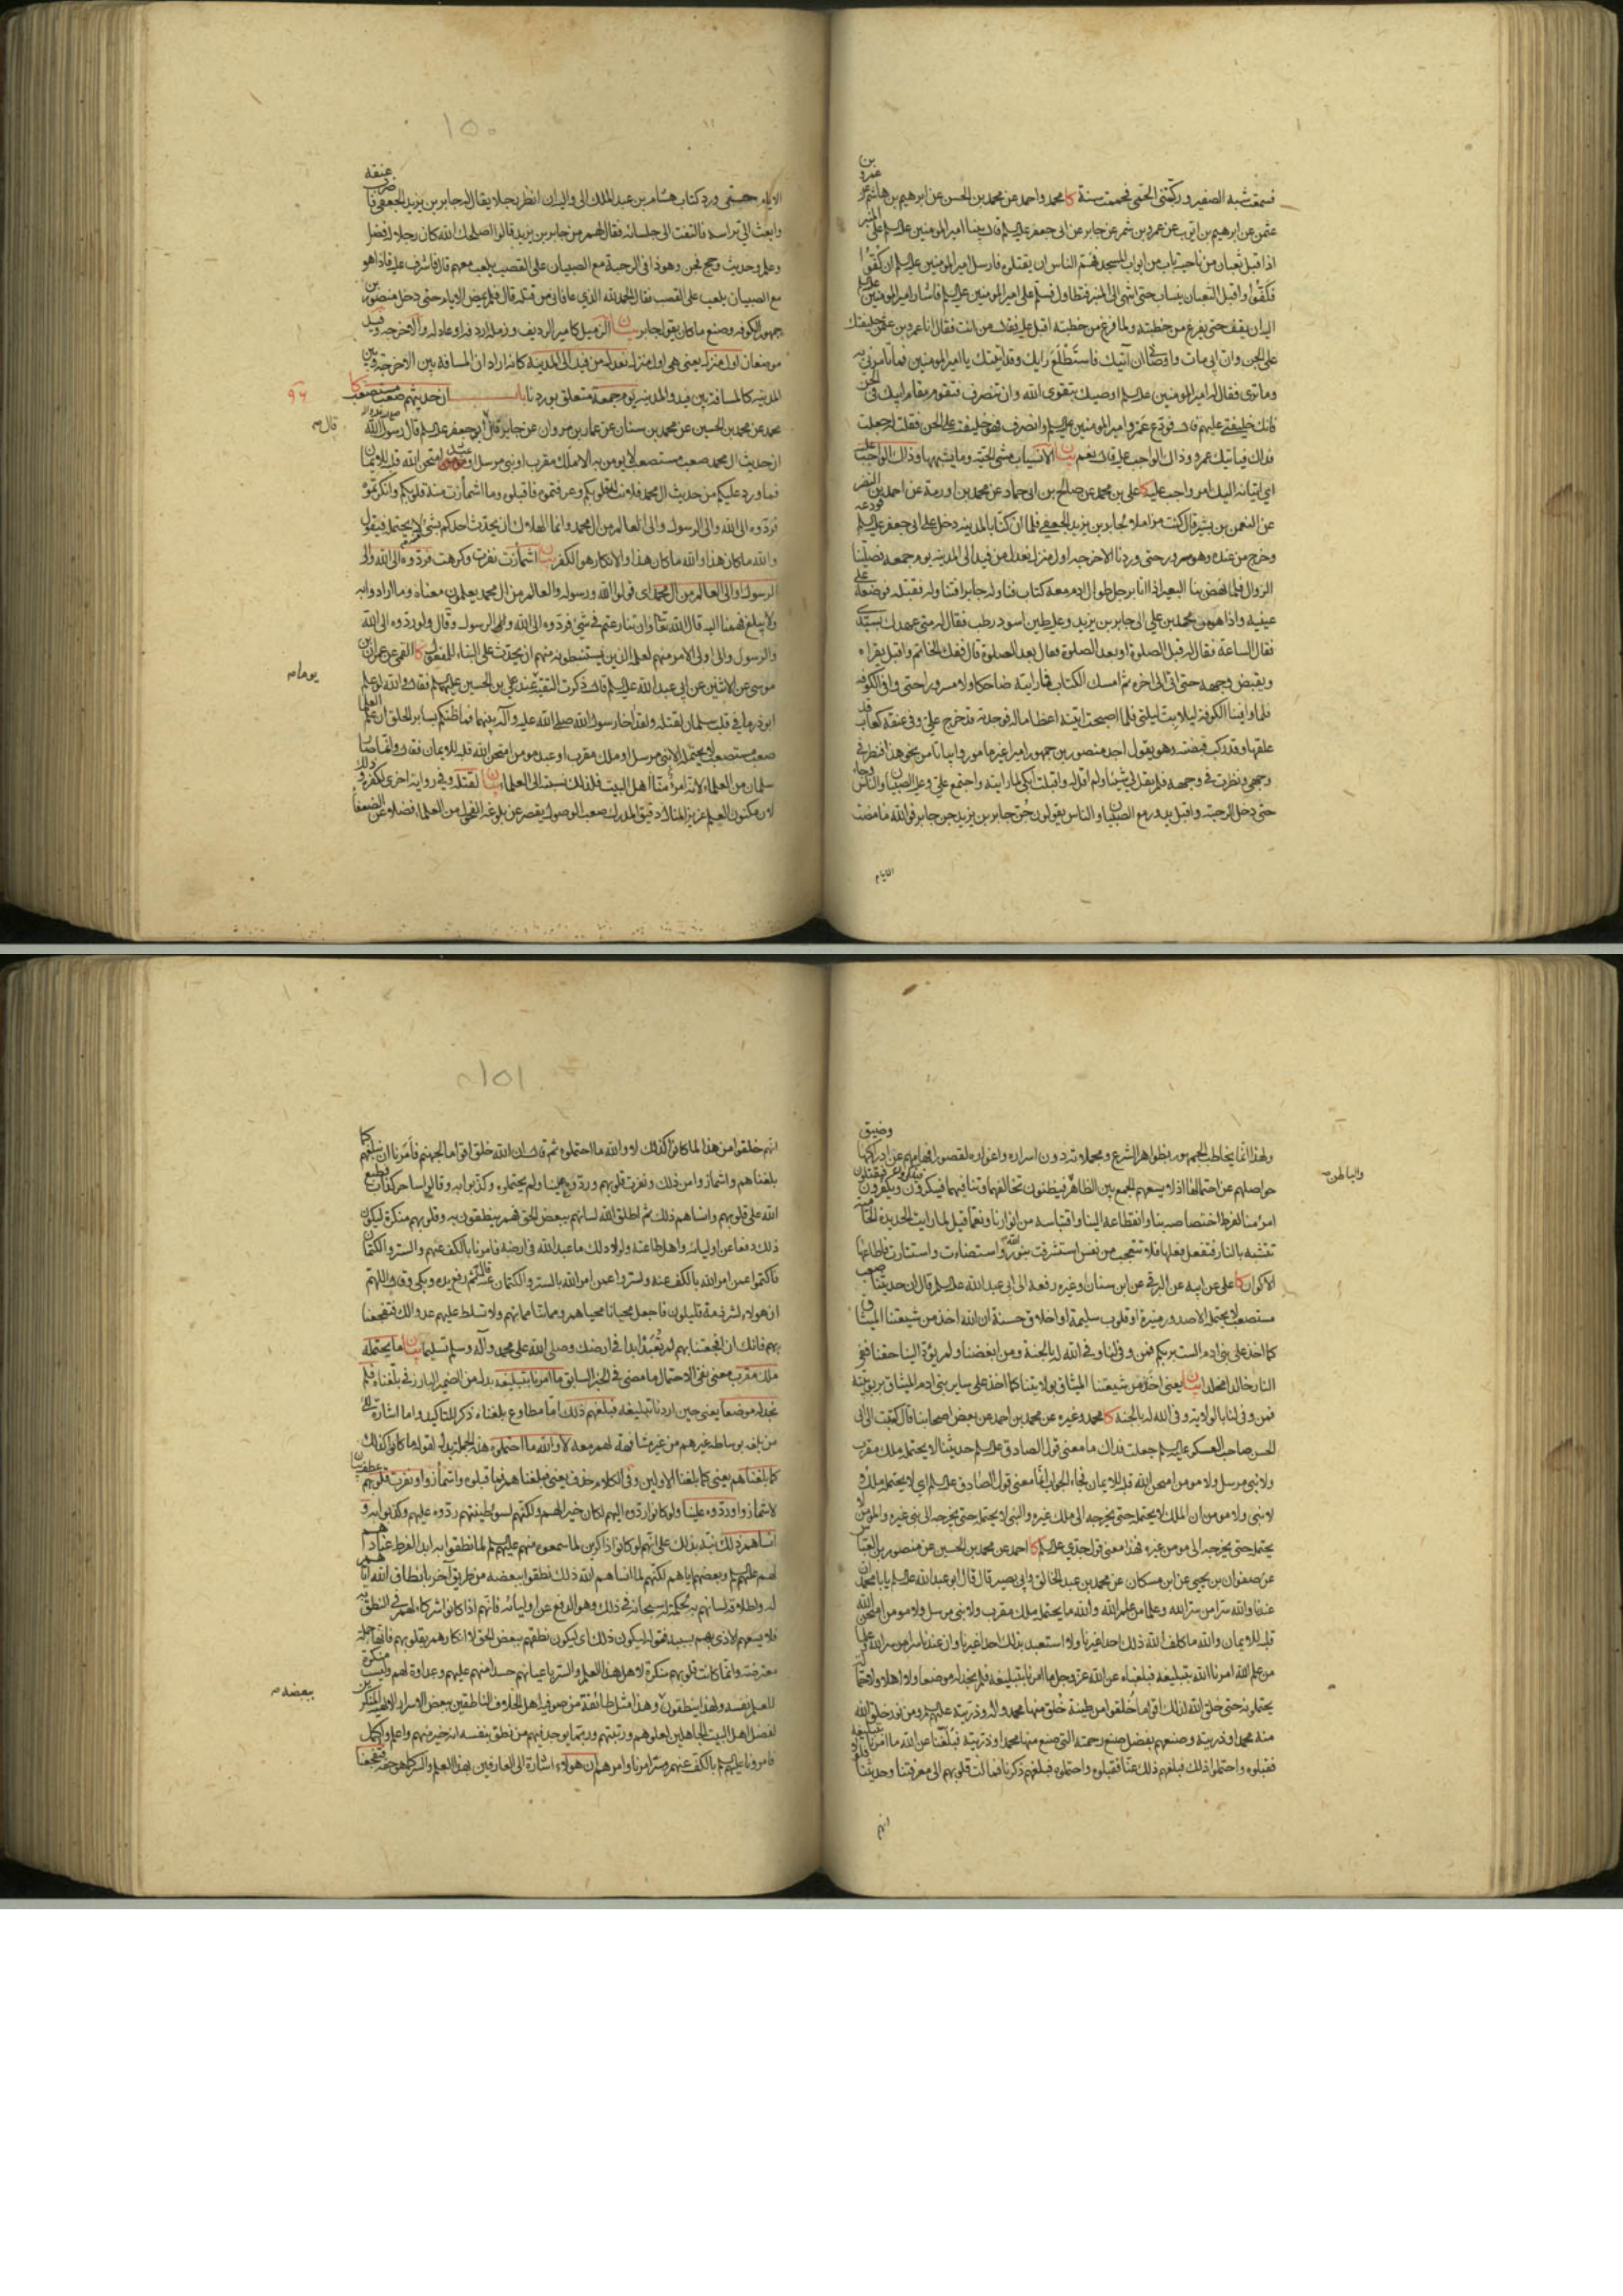 فسمعت شبه الصفير وركبتنى الحمى فحممت سنة كا محمد واحمد عن محمد بن الحسن عن ابرهيم بن هاشم عن عمرو بن
عثمن عن ابرهيم بن ايوب عن عمرو بن شمر عن جابر عن ابى جعفر عليه السلم قال بينا امير المومنين عليه السلم على المنبر
اذا قبل ثعبان من ناحية باب من ابواب المسجد فهم الناس ان يقتلوه فارسل امير المومنين عليه السلم ان كفوا
فكفوا واقبل الثعبان ينساب حتى انتهى الى المنبر فتطاول فسلم على امير المومنين عليه السلم فاشار امير المومنين عليه السلم
اليه ان يقف حتى يفرغ من خطبته ولما فرغ من خطبته اقبل عليه فقال من انت فقال انا عمرو بن عثمن خليفتك
على الجن وان ابى مات واوصانى ان آتيك فاستطلع رايك وقد اتيتك يا امير المومنين فما تامرنى به
وما ترى فقال له امير المومنين عليه السلم اوصيك بتقوى الله وان تنصرف فتقوم مقام ابيك فى الجن
فانك خليفتى عليهم قال فودع عمرو امير المومنين عليه السلم وانصرف فهو خليفته على الجن فقلت له جعلت
فداك فياتيك عمرو وذاك الواجب عليه قال نعم بيان الانسياب مشى الحية وما يشبهها وذاك الواجب عليه
اى اتيانه اليك امر واجب عليه كا على بن محمد عن صالح بن ابى حماد عن محمد بن اورمة عن احمد بن النضر
عن النعمن بن بشير قال كنت مزاملا لجابر بن يزيد الجعفى فلما ان كنا بالمدينه دخل على ابى جعفر عليه السلم فودعه
وخرج من عنده وهو مسرور حتى وردنا الاخرجه اول منزل نعدل من فيد الى المدينه يوم جمعه فصلينا
الزوال فلما نهض بنا البعير اذا انا برجل طوال ادم معه كتاب فناوله جابرا فتناوله فقبله فوضعه على
عينيه واذا هو من محمد بن على الى جابر بن يزيد وعليه طين اسود رطب فقال له متى عهدك بسيدى
فقال الساعة فقال له قبل الصلوة او بعد الصلوة فقال بعد الصلوة قال ففك الخاتم واقبل يقراه
ويقبض وجهه حتى اتى الى اخره ثم امسك الكتاب فما رايته ضاحكا ولا مسرورا حتى وافى الكوفه
فلما وافينا الكوفة ليلا بت ليلتى فلما اصبحت اتيته اعظاما له فوجدته قد خرج على وفى عنقه كعاب
علقها وقد ركب قصبة وهو يقول اجد منصور بن جمهور اميرا غير مامور وابياتا من نحو هذا فنظر فى
وجهى ونظرت فى وجهه فلم يقل لى شيئا ولم اقل له واقبلت ابكى لما رايته واجتمع على وعليه الصبيان والناس وجاء
حتى دخل الرحبة واقبل يدور مع الصبيان والناس يقولون جن جابر بن يزيد جن جابر فوالله ما مضت
الايام
١٥٠
الايام حتى ورد كتاب هشام بن عبد الملك الى واليه ان انظر رجلا يقال له جابر بن يزيد الجعفى فاضرب عنقه
وابعث الى براسه فالتفت الى جلسائه فقال لهم من جابر بن يزيد قالوا اصلحك الله كان رجلا له فضل
وعلم وحديث وحج فجن وهو ذا فى الرحبة مع الصبيان على القصب يلعب معهم قال فاشرف عليه فاذا هو
مع الصبيان يلعب على القصب فقال الحمد لله الذى عافانى من قتله قال فلم يمض الايام حتى دخل منصور بن
جمهور الكوفه وصنع ما كان يقول جابر بيان الزميل كامير الرديف وزمله اردفه او عادله والاخرجه وفيد
موضعان اول منزل يعنى هى اول منزل نعدل من فيد الى المدينة كانه اراد ان المسافة بين الاخرجة وبين
المدينه كالمسافة بين فيد والمدينه يوم جمعة متعلق بوردنا باب ان حديثهم صعب مستصعب كا
٩٦
محمد عن محمد بن الحسين عن محمد بن سنان عن عمار بن مروان عن جابر قال قال ابو جعفر عليه السلم قال رسول الله
قال
ان حديث ال محمد صعب مستصعب لا يومن به الا ملك مقرب او نبى مرسل او عبد امتحن الله قلبه للايمان
فما ورد عليكم من حديث ال محمد فلانت له قلوبكم وعرفتموه فاقبلوه وما اشمازت منه قلوبكم وانكرتموه
فردوه الى الله والى الرسول والى العالم من ال محمد وانما الهلاك ان يحدث احدكم بشئ لا يحتمله فيقول
والله ما كان هذا والله ما كان هذا والانكار هو الكفر بيان اشمازت نفرت وكرهت فردوه الى الله والى
الرسول والى العالم من ال محمد اى قولوا الله ورسوله والعالم من ال محمد يعلمون معناه وما ارادوا به
ولا يبلغ فهمنا اليه قال الله تعالى وان تنازعتم فى شئ فردوه الى الله والى الرسول وقال ولو ردوه الى الله
والرسول والى اولى الامر منهم لعلمه الذين يستنبطونه منهم ان يحدث على البناء للمفعول كا القمى عن عمران بن
موسى عن الاثنين عن ابى عبد الله عليه السلم قال ذكرت التقية عند على بن الحسين عليهما السلم فقال والله لو علم
يوما
ابوذر ما فى قلب سلمان لقتله ولقد اخا رسول الله صلى الله عليه وآله بينهما فما ظنكم بساير الخلق ان علم العلما
صعب مستصعب لا يحتمله الا نبى مرسل او ملك مقرب او عبد مومن امتحن الله قلبه للايمان فقال وانما صار
سلمان من العلماء لانه امرؤ منا اهل البيت فلذلك نسبته الى العلماء بيان لقتله وفى رواية اخرى لكفره وذلك
لان مكنون العلم عزيز المنال دقيق المدرك صعب الوصول يقصر عن بلوغه الفحول من العلماء فضلا عن الضعفاء
ولهذا انما يخاطب الجمهور بظواهر الشرع ومجملاته دون اسراره واغواره لقصور افهامهم عن ادراكها وضيق
حواصلهم عن احتمالها اذ لا يسعهم الجمع بين الظاهر فيظنون تخالفهما وتنافيهما فينكرون ويكفرون
والباطن
تقتشبه بالنار فتفعل فعلها فلا تتعجب من نفس استشرقت بنور الله واستضاءت واستنارت فاطاعها
الاكوان كا على عن ابيه عن البرقى عن ابن سنان او غيره رفعه الى ابى عبد الله عليه السلم قال ان حديثنا صعب
مستصعب لا يحتمله الا صدور منيرة او قلوب سليمة او اخلاق حسنة ان الله اخذ من شيعتنا الميثاق
كما اخذ على بنى ادم الست بربكم فمن وفى لنا وفى الله له بالجنة ومن ابغضنا ولم يؤد الينا حقنا ففى
النار خالدا مخلدا بيان يعنى اخذ من شيعتنا الميثاق بولايتنا كما اخذ على ساير بنى ادم الميثاق بربوبيته
فمن وفى لنا بالولاية وفى الله له بالجنة كا محمد وغيره عن محمد بن احمد عن بعض اصحابنا قال كتبت الى ابى
الحسن صاحب العسكر عليه السلم جعلت فداك ما معنى قول الصادق عليه السلم حديثنا لا يحتمله ملك مقرب
ولا نبى مرسل ولا مومن امتحن الله قلبه للايمان فجاء الجواب انما معنى قول الصادق عليه السلم اى لا يحتمله ملك و
لا نبى ولا مومن ان الملك لا يحتمله حتى يخرجه الى ملك غيره والنبى لا يحتمله حتى يخرجه الى نبى غيره والمومن لا
يحتمله حتى يخرجه الى مومن غيره فهذا معنى قول جدى عليه السلم كا احمد عن محمد بن الحسين عن منصور بن العباس
عن صفوان بن يحيى عن ابن مسكان عن محمد بن عبد الخالق وابى بصير قال قال ابو عبد الله عليه السلم يا با محمد ان
عندنا والله سرا من سر الله وعلما من علم الله والله ما يحتمله ملك مقرب ولا نبى مرسل ولا مومن امتحن الله
قلبه للايمان والله ما كلف الله ذلك احدا غيرنا ولا استعبد بذلك احدا غيرنا وان عندنا سرا من سر الله وعلما
من علم الله امرنا الله بتبليغه فبلغناه عن الله عز وجل ما امرنا بتبليغه فلم نجد له موضعا ولا اهلا ولا حمالة
يحتملونه حتى خلق الله لذلك اقواما خلقوا من طينة خلق منها محمد واله وذريته عليهم السلم ومن نور خلق الله
منه محمدا وذريته وصنعهم بفضل صنع رحمته التى صنع منها محمدا وذريته فبلغنا عن الله ما امرنا بتبليغه
فقبلوه واحتملوا ذلك فبلغهم ذلك عنا فقبلوه واحتملوه فبلغهم ذكرنا فمالت قلوبهم الى معرفتنا وحديثنا فلولا
انهم
١٥١
انهم خلقوا من هذا لما كانوا كذلك لا والله ما احتملوه ثم قال ان الله خلق اقواما لجهنم فامرنا ان نبلغهم كما
بلغناهم واشمازوا من ذلك ونفرت قلوبهم وردوه علينا ولم يحتملوه وكذبوا به وقالوا ساحر كذاب فطبع
الله على قلوبهم وانساهم ذلك ثم اطلق الله لسانهم ببعض الحق فهم ينطقون به وقلوبهم منكرة ليكون
ذلك دفعا عن اوليائه واهل طاعته ولولا ذلك ما عبد الله فى ارضه فامرنا بالكف عنهم والستر والكتمان
فاكتموا عمن امر الله بالكف عنه واستروا عمن امر الله بالستر والكتمان عنه قال ثم رفع يده وبكى وقال اللهم
ان هولاء لشرذمة قليلون فاجعل محيانا محياهم ومماتنا مماتهم ولا تسلط عليهم عدوا لك فتفجعنا
بهم فانك ان افجعتنا بهم لم تعبد ابدا فى ارضك وصلى الله على محمد وآله وسلم تسليما بيان اما يحتمله
ملك مقرب معنى نفى الاحتمال ما مضى فى الخبر السابق ما امرنا بتبليغه بدل من الضمير البارز فى بلغناه فلم
نجد له موضعا يعنى حين اردنا تبليغه فبلغهم ذلك اما مطاوع بلغناه ذكر للتاكيد واما اشارة الى
من بلغه بوساطة غيرهم من غير مشافهة لهم معه لا والله ما احتملوه هذه الجملة بدل لقوله ما كانوا كذلك
كما بلغناهم يعنى كما بلغنا الاولين وفى الكلام حذف يعنى فبلغناهم فما قبلوه واشمازوا ونفرت قلوبهم عطف بيان
لاشمازوا وردوه علينا ولو كانوا ردوه اليهم لكان خيرا لهم ولكنهم لسوء طينتهم ردوه عليهم وكذبوا به و
انساهم ذلك نبه بذلك على انهم لو كانوا ذاكرين لما سمعوه منهم عليهم السلم لما نطقوا به ابدا لفرط عنادهم
لهم عليهم السلم وبعضهم اياهم لكنهم لما انساهم الله ذلك نطقوا ببعضه من طريق آخر بانطاق الله اياهم
فلا يسعهم الاذى بهم بسببه فقوله ليكون ذلك اى ليكون نطقهم ببعض الحق لا انكارهم بقلوبهم فانها جملة
معترضة وانما كانت قلوبهم منكرة لاهل هذا العلم والستر باعيانهم حسدا منهم عليهم وعداوة لهم وليست منكرة
للعلم نفسه ولهذا ينطقون وهذا مثل طائفة من صوفية اهل الخلاف الناطقين ببعض الاسرار الالهية المنكرين
ببعضه
لفضل اهل البيت الجاهلين لعلوهم ورتبتهم وربما يوجد فيهم من نطق بنفسه انه خير منهم واعلم واكمل
فامرونا عليهم السلم بالكف عنهم وستر امرنا وامرهم ان هولاء اشارة الى العارفين بهذا العلم والستر كما هو حقه فتفجعنا